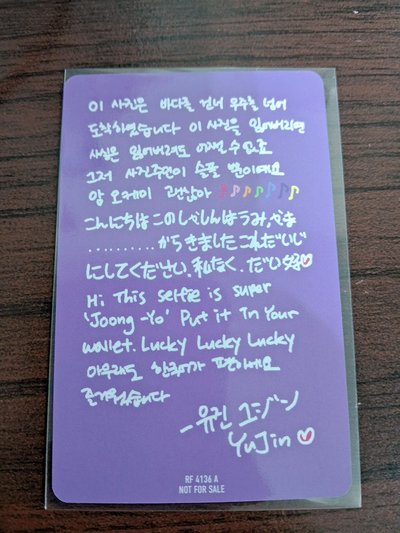 이 사진은 바다를 건너 우주를 넘어
도착하였습니다 이 사진을 잃어버리면
사실은 잃어버려도 어쩔 수 없죠
그저 사진주인이 슬플 뿐이예요
암 오케이 괜찮아
こんにちは このしゃしんはうみ、やま
..........からきました これだいじ
にしてください。私なく、だい好♡
Hi This selfie is super
'Joong-Yo' Put it In Your
wallet. Lucky Lucky Lucky
아무래도 한국어가 편하네요
즐거웠습니다
-유진 ユジン
YuJin ♡
RF 4136 A
NOT FOR SALE